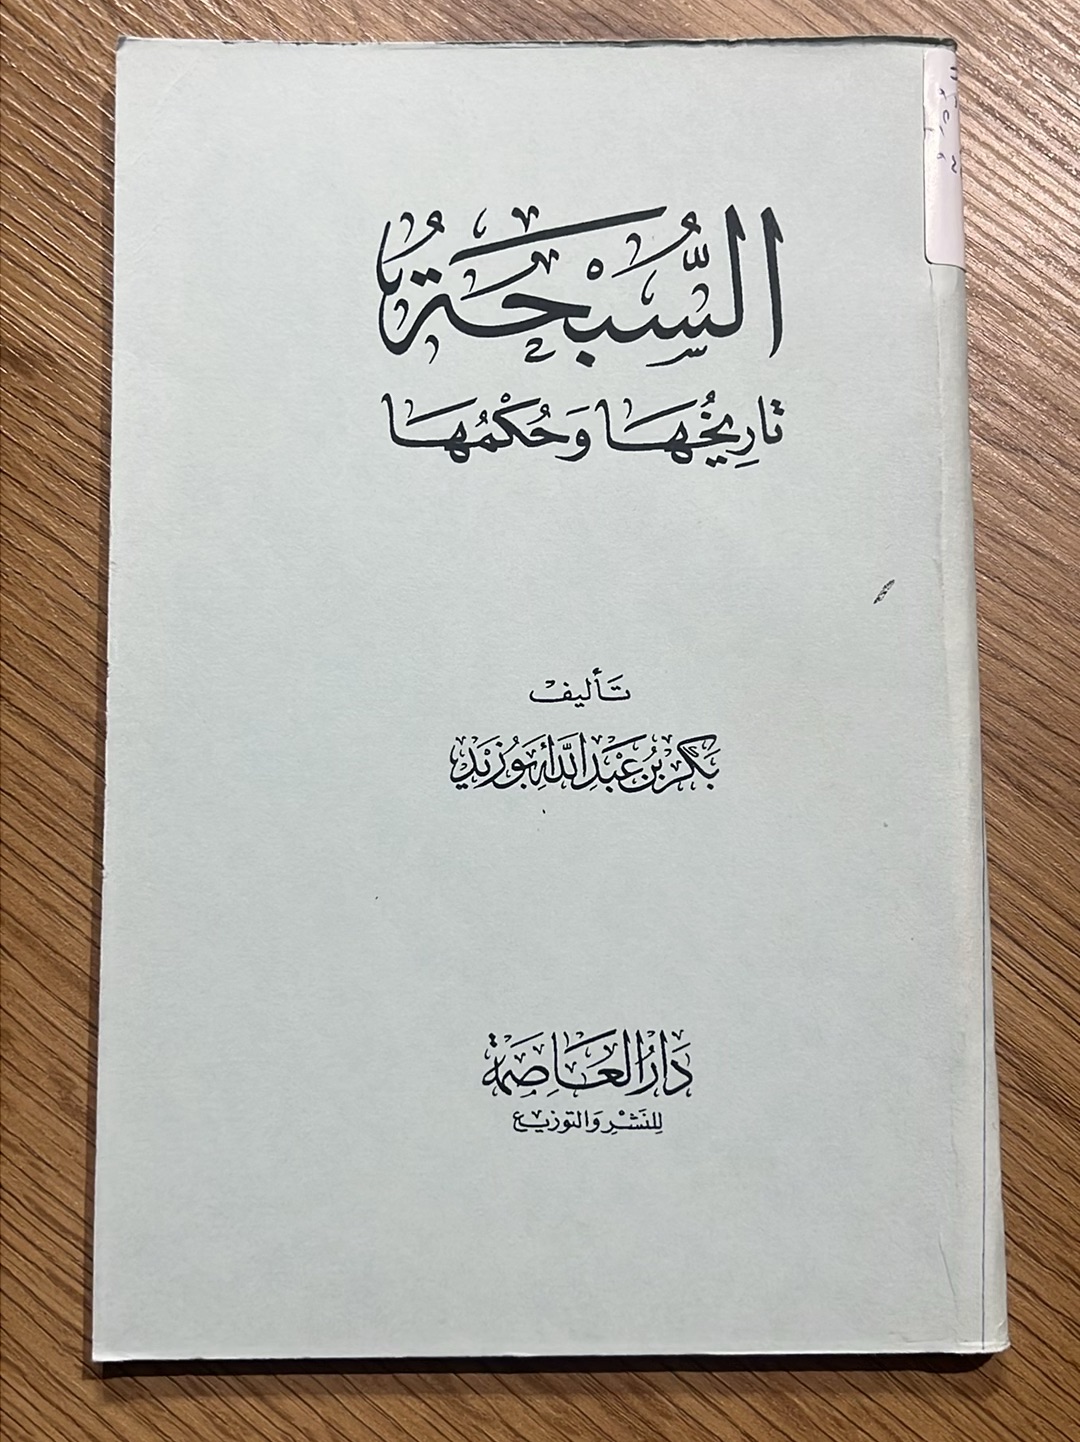 السُّبْحَةُ
تَارِيخُهَا وَحُكْمُهَا
تَأليف
بَكر بن عَبْدِ اللَّه أَبُو زَيْد
دَارُ العَاصِمَة
لِلنَشْرِ وَالتوزيع